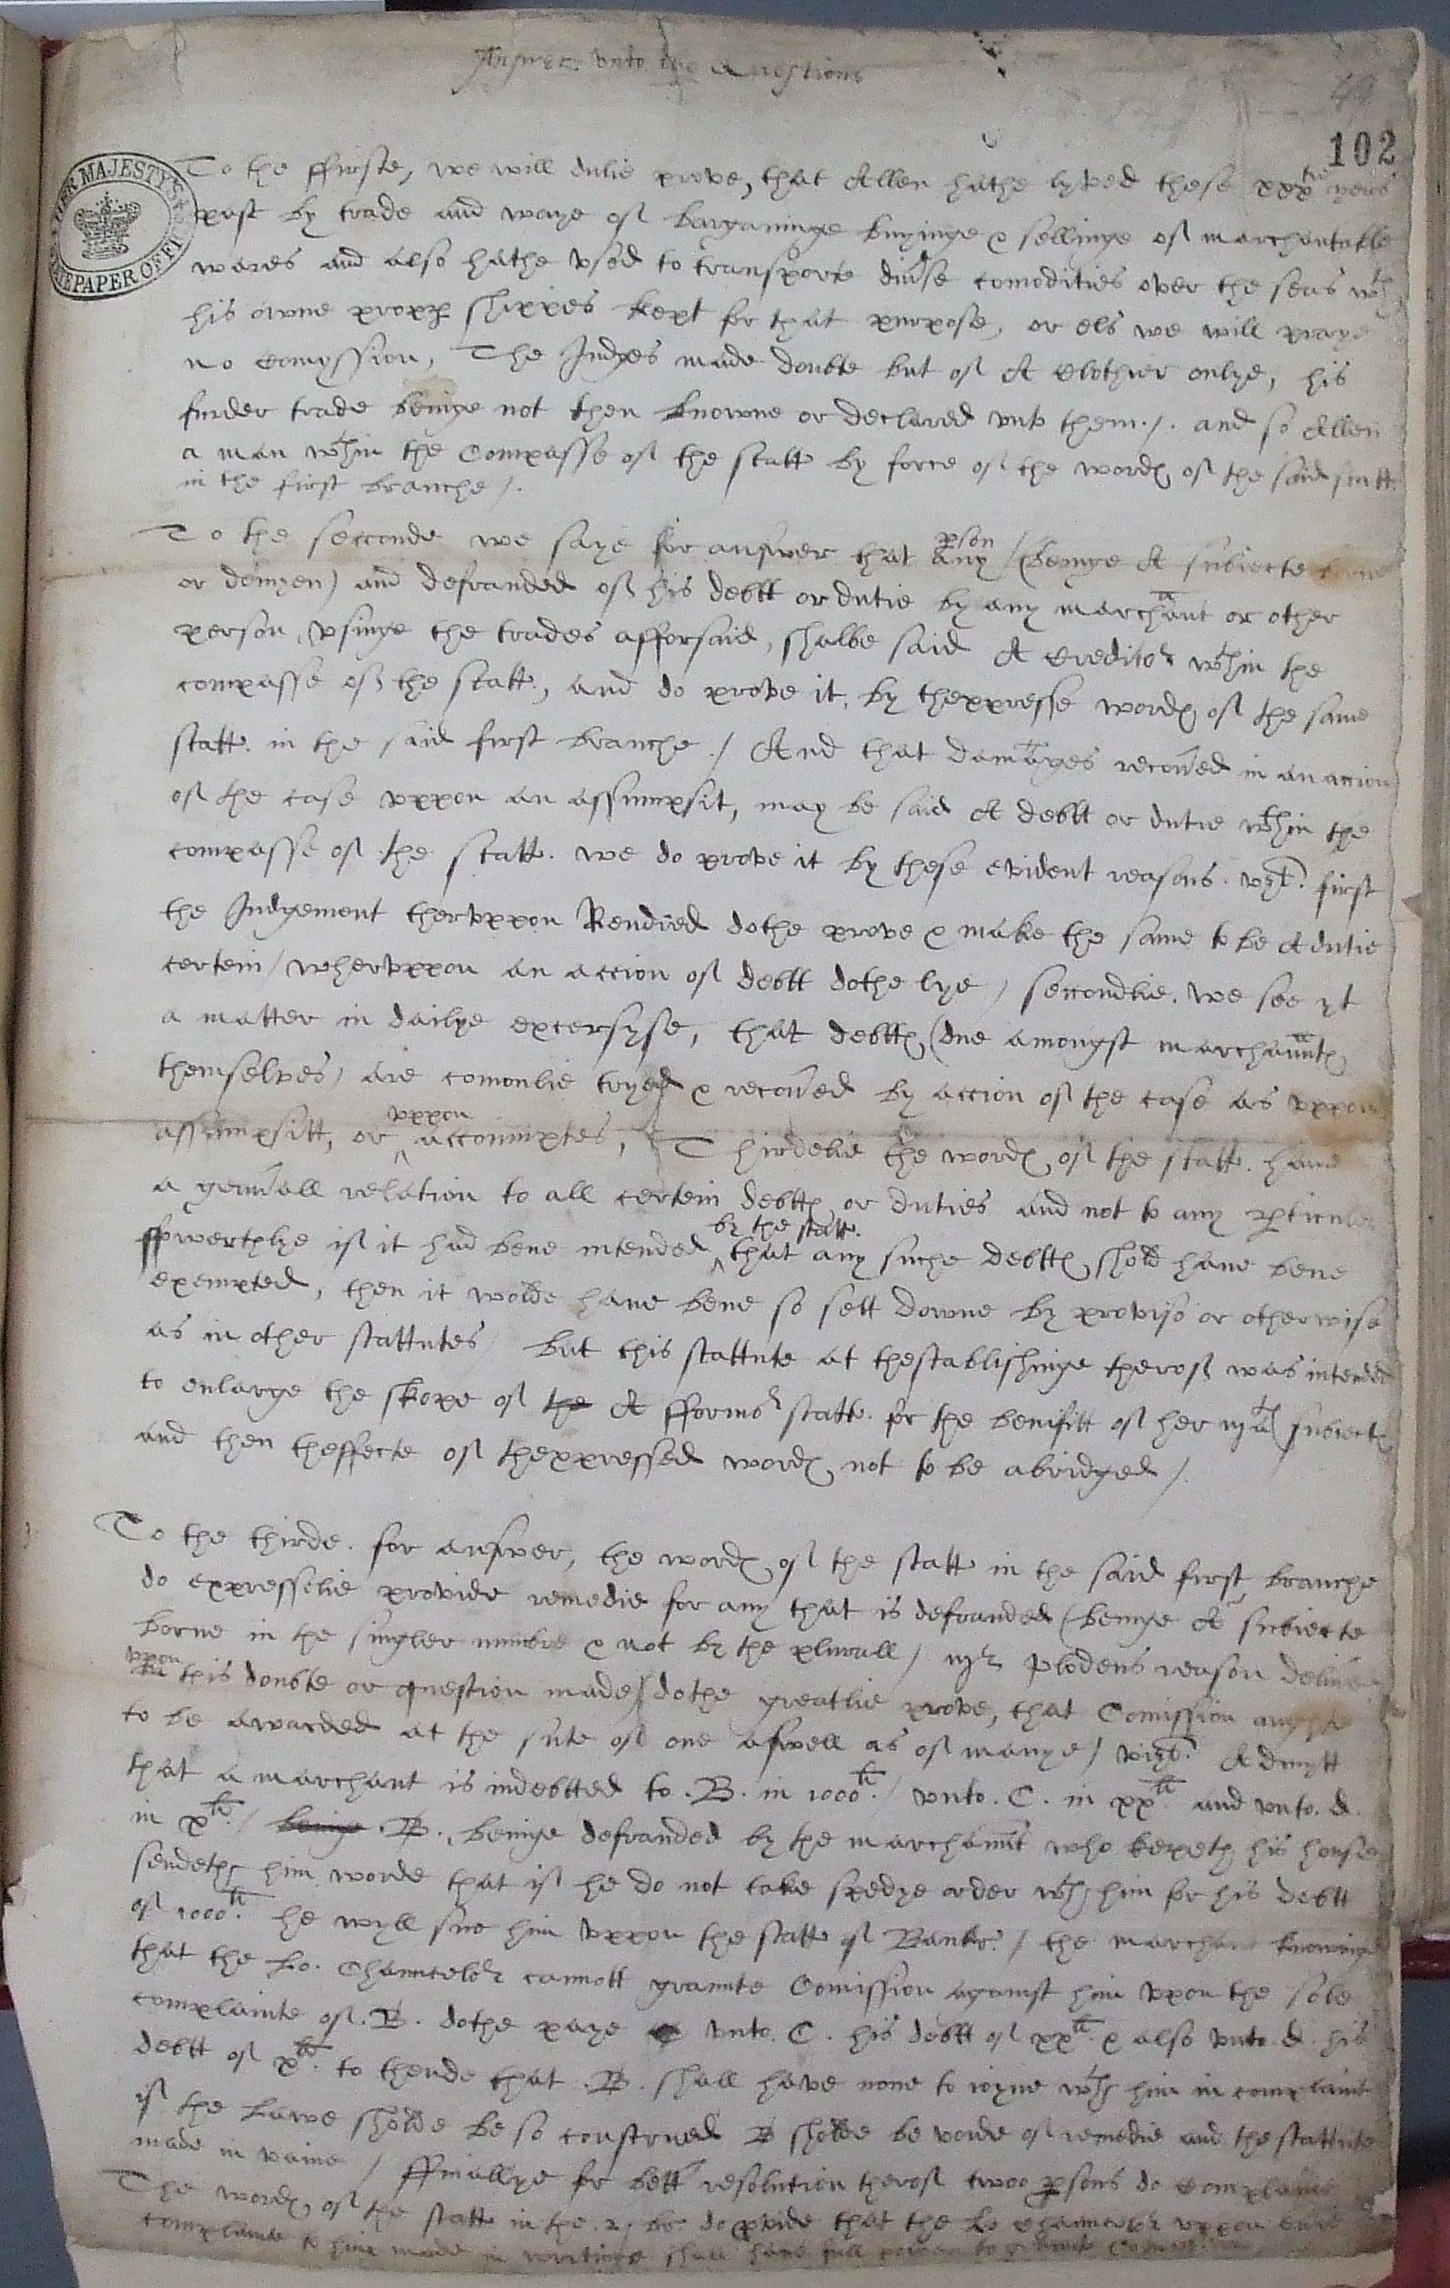 Answer vnto the Questions
49
102
HER MAJESTY'S STATE PAPER OFFI
To the ffirste, we will dulie prove, that Allen hathe lyved these xxxtie yeres
past by trade and waye of bargaininge buyinge & sellinge of marchantable
wares and also hathe vsed to transporte diuse comodities over the seas wth
his owne propp shippes kept for that purpose, or els we will praye
no comyssion, The Judges made doubte but of A Clothier onlye, his
furder trade beinge not then knowne or declared vnto them ./. and so Allen
a man wthin the Compasse of the statt by force of the wordes of the said statt.
in the first branche /.
To the seconde we saye for answer that any pson / (beinge A subiecte borne
or denyzen) and defrauded of his debtt or dutie by any marchaunt or other
person, vsinge the trades afforsaid, shalbe said A Creditor wthin the
compasse of the statt, and do prove it, by thexpresse wordes of the same
statt. in the said first branche / And that damages recoued in an accion
of the case vppon an assumpsit, may be said A debtt or dutie wthin the
compasse of the statt. we do prove it by these evident reasons. vizt. first
the Judgement thervppon Rendred dothe prove & make the same to be A dutie
certein / whervppon an accion of debtt dothe lye / secondlie. we see yt
a matter in dailye excersyse, that debttes (due amongst marchauntes
themselves) are comonlie tryed & recoued by accion of the case as vppon
assumpsitt, or vppon accoumptes, Thirdelie the wordes of the statt. haue
a genrall relation to all certein debttes or duties and not to any pticuler
ffowerthlye if it had bene intended by the statt. that any suche debttes shold haue bene
exempted, then it wolde haue bene so sett downe by proviso or otherwise
as in other stattutes / but this stattute at thestablishinge therof was intended
to enlarge the skope of the A fformor statt. for the benifitt of her mats subiectes
and then theffecte of thexpressed wordes not to be abridged /.
To the thirde. for answer, the wordes of the statt in the said first branche
do expresselie provide remedie for any that is defrauded (beinge A subiecte
borne in the singler numbre & not by the plurall / mr Plodens reason
vppon this doubte or question made) dothe greatlie prove, that Comission
to be awarded at the sute of one aswell as of manye / vizt. Admytt
that a marchant is indebtted to .B. in 1000li. / vnto .C. in xxli. and vnto .d.
in xli. / beinge .B. beinge defrauded by the marchaunt who kepeth his house
sendeth him worde that if he do not take spedye order wth him for his debtt
of 1000li he wyll sue him vppon the statt of Bankr. / the marchant knowinge
that the Lo. Chauncelor cannott graunte Comission against him vpon the sole
complainte of .B. dothe paye vnto .C. his debtt of xxli. & also vnto .d. his
debtt of xli. to thende that .B. shall have none to ioyne wth him in complaint
if the Lawe sholde be so construed B sholde be voide of remedie and the stattute
made in vaine / ffinallye for bettr resolution therof twoo psons do complaine
The wordes of the statt in the .2. br. do pvide that the Lo Chauncelor vppon eurie
complainte to him made in writinge shall haue full power to graunte